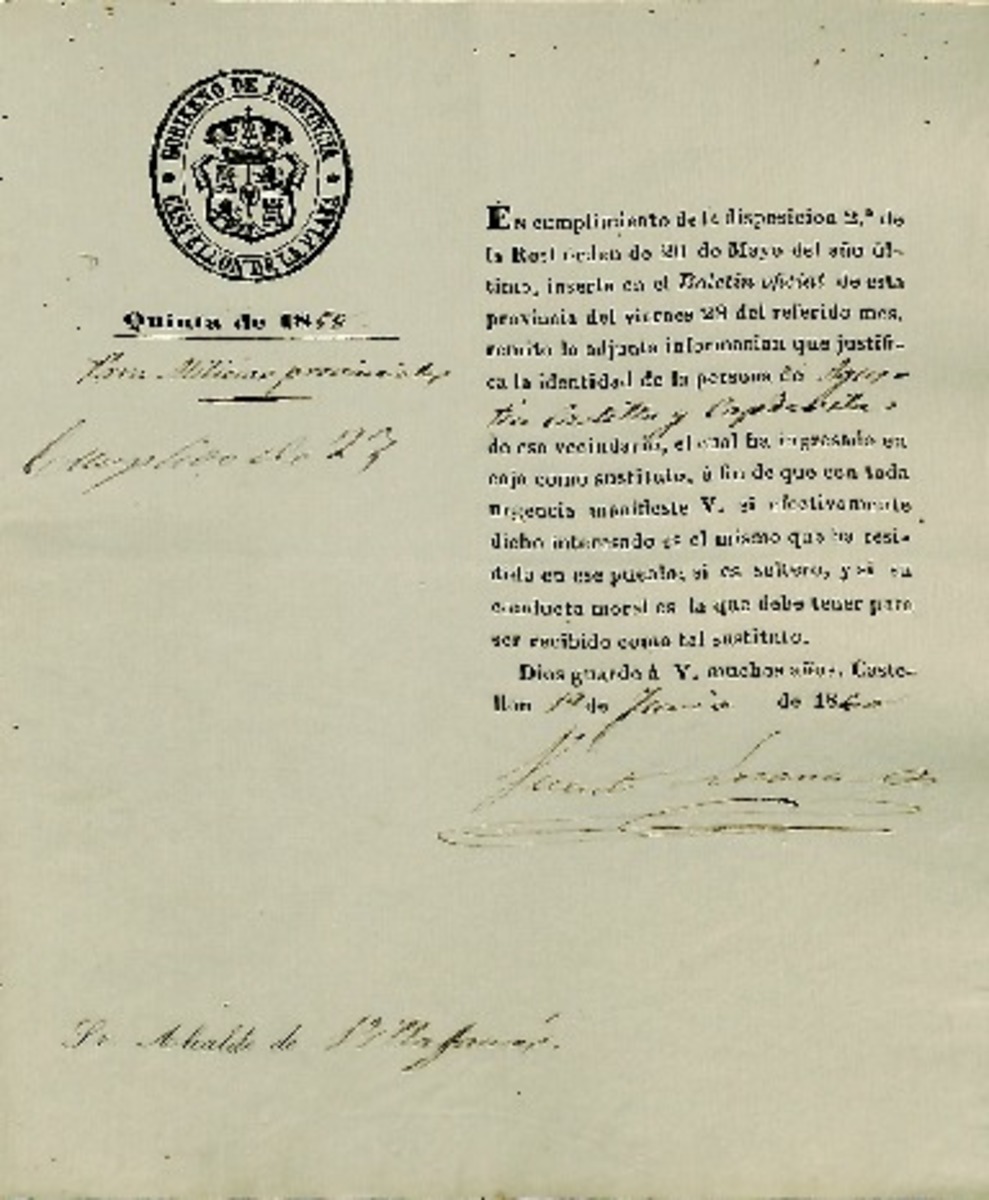 GOBIERNO DE PROVINCIA
CASTELLON DE LA PLANA
Quinta de 1859
Para Milicias provinciales
Cumplido de 23
EN cumplimiento de la disposicion 2.ª de
la Real orden de 20 de Mayo del año úl-
timo, inserta en el Boletin oficial de esta
provincia del viernes 28 del referido mes,
remito la adjunta informacion que justifi-
ca la identidad de la persona de Agus-
tin y
de esa vecindario, el cual ha ingresado en
caja como sustituto, á fin de que con toda
urgencia manifieste V. si efectivamente
dicho interesado es el mismo que ha resi-
dido en ese pueblo; si es soltero, y si su
conducta moral es la que debe tener para
ser recibido como tal sustituto.
Dios guarde á V. muchos años. Caste-
llon 1º de de 1860
Sr. Alcalde de